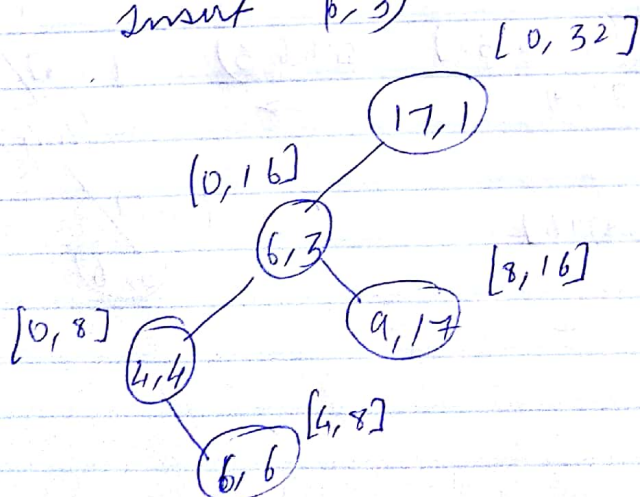 Insert 6, 3)
[0, 32]
17, 1
[0, 16]
6, 3
[8, 16]
9, 17
[0, 8]
4, 4
[4, 8]
6, 6